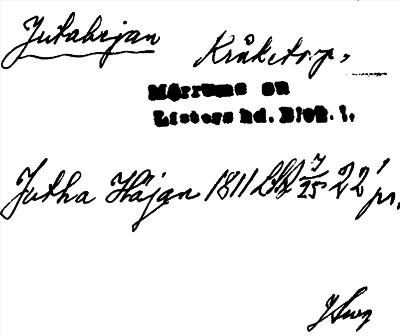 Jutahejan Kråketorp,
Mörrums sn
Listers hd. Blek. l.
Jutha Häjan 1811 LSA 7/25 22' pr.
JSwg